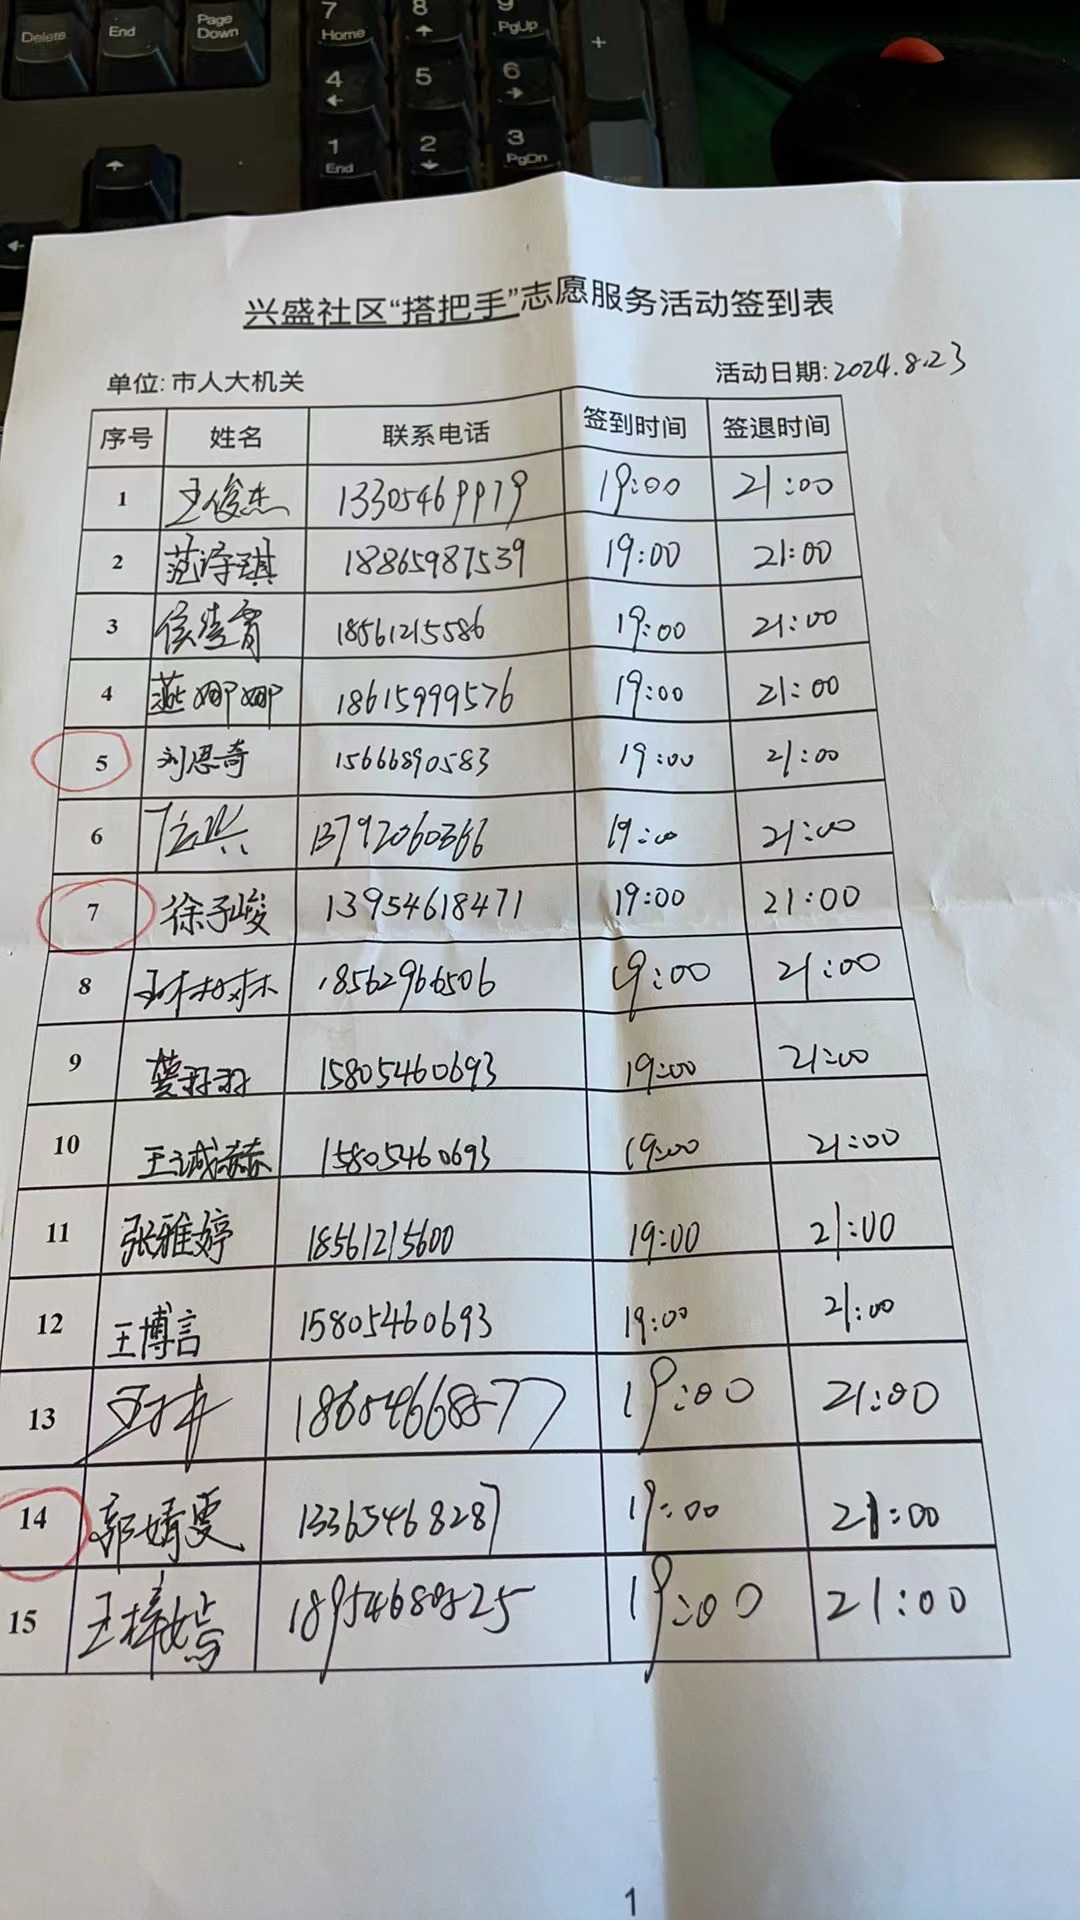 Delete End Page Down
7 Home 8 9 PgUp +
4 5 6
1 End 2 3 PgDn
兴盛社区“搭把手”志愿服务活动签到表
单位: 市人大机关 活动日期: 2024.8.23
序号 姓名 联系电话 签到时间 签退时间
1 王俊杰 13305469979 19:00 21:00
2 范诗琪 18865987539 19:00 21:00
3 18561215586 19:00 21:00
4 燕娜娜 18615999576 19:00 21:00
5 刘恩奇 15666890583 19:00 21:00
6 13792060366 19:00 21:00
7 徐子峻 13954618471 19:00 21:00
8 18562966506 19:00 21:00
9 15805460693 19:00 21:00
10 王诚赫 15805460693 19:00 21:00
11 张雅婷 18561215600 19:00 21:00
12 王博言 15805460693 19:00 21:00
13 18654668577 19:00 21:00
14 郭婧雯 13365468287 19:00 21:00
15 王梓嫣 18954688525 19:00 21:00
1